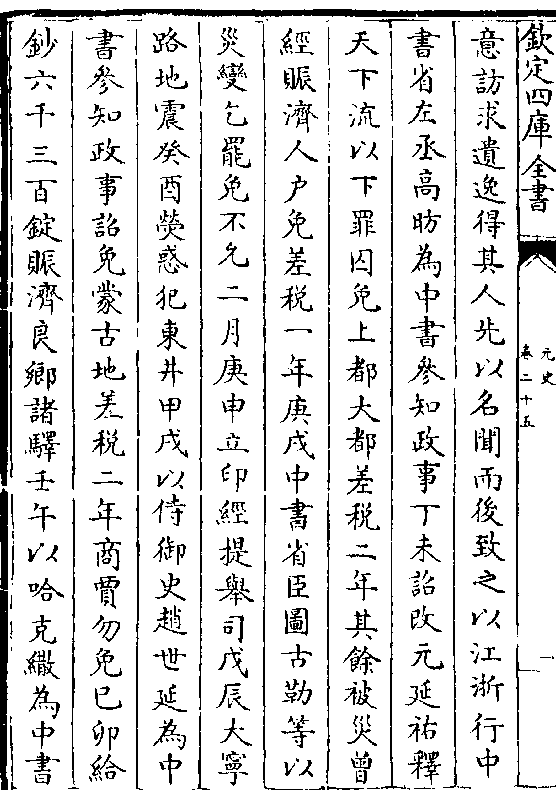 欽定四庫全書
元史
卷二十五
意訪求遺逸得其人先以名聞而後致之以江浙行中
書省左丞高昉為中書參知政事丁未詔改元延祐釋
天下流以下罪囚免上都大都差稅二年其餘被災曾
經賑濟人户免差稅一年庚戌中書省臣圖古勒等以
災變乞罷免不允二月庚申立印經提舉司戊辰大寧
路地震癸酉熒惑犯東井甲戌以侍御史趙世延為中
書參知政事詔免蒙古地差稅二年商賈勿免己卯給
鈔六千三百錠賑濟良鄉諸驛壬午以哈克繖為中書
一